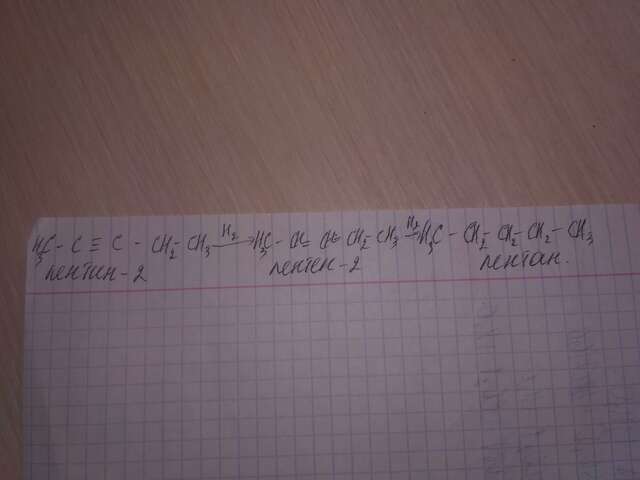 H₃C - C ≡ C - CH₂ - CH₃ —H₂→ H₃C - CH = CH - CH₂ - CH₃ —H₂→ H₃C - CH₂ - CH₂ - CH₂ - CH₃
пентин-2 пентен-2 пентан.